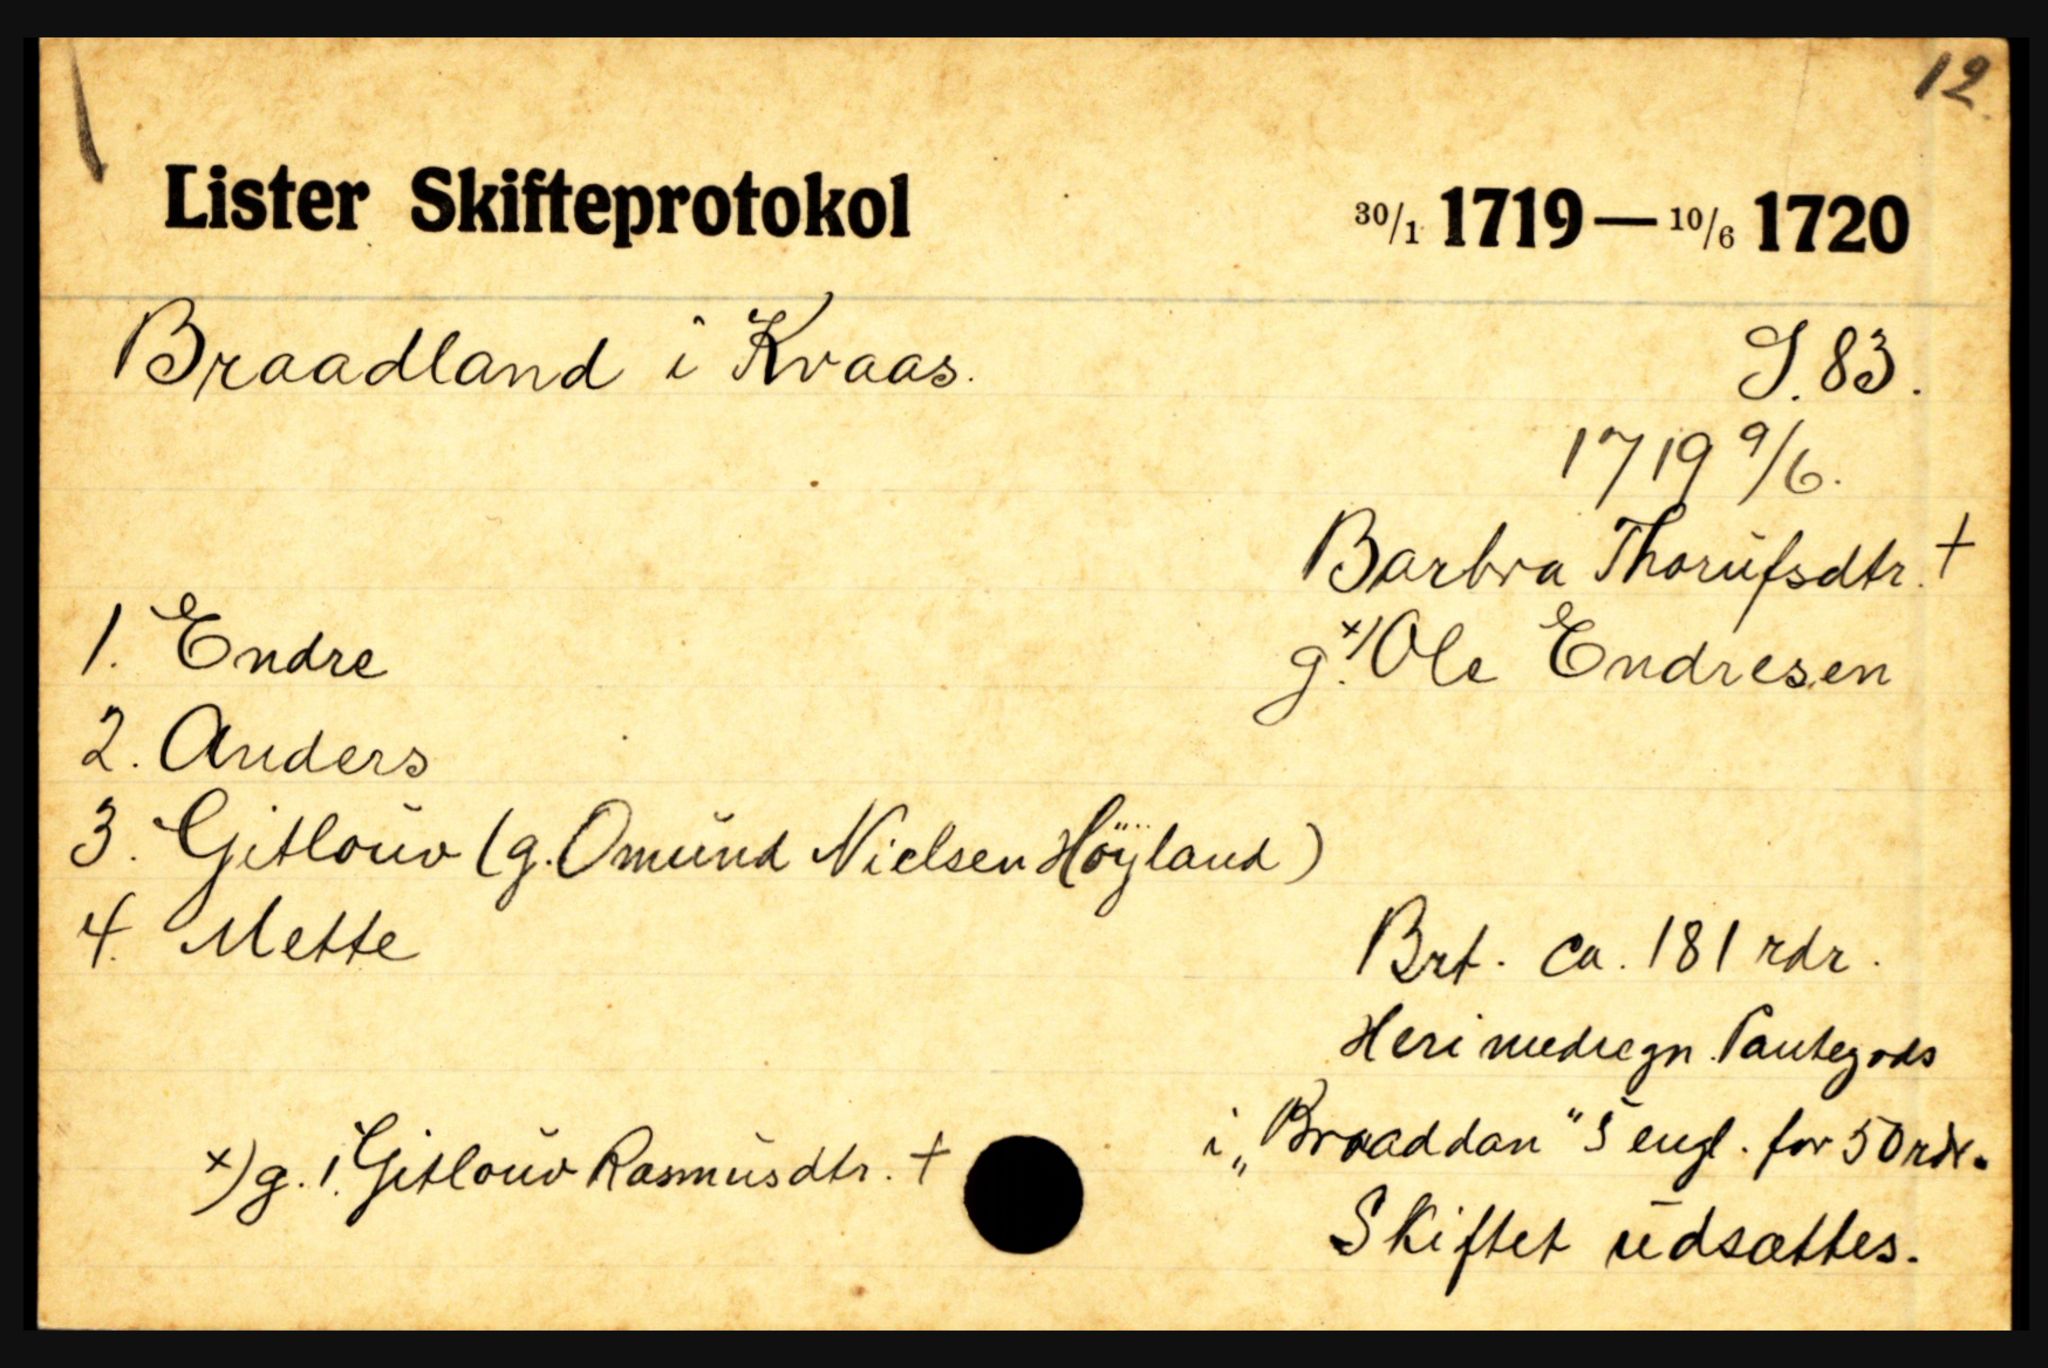 12.
Lister Skifteprotokol 30/1 1719 — 10/6 1720
Braadland i Kvaas. S. 83.
1719 9/6.
Barbra Thorufsdtr. +
1. Endre
g. x) Ole Endresen
2. Anders
3. Gitlouv (g. Omund Nielsen Höÿland)
4. Mette
Brt. ca. 181 rdr.
Heri medregn. Pantegods
i „Braaddan" 5 engl. for 50 rdr.
x) g. 1. Gitlouv Rasmusdtr. +
Skiftet udsættes.